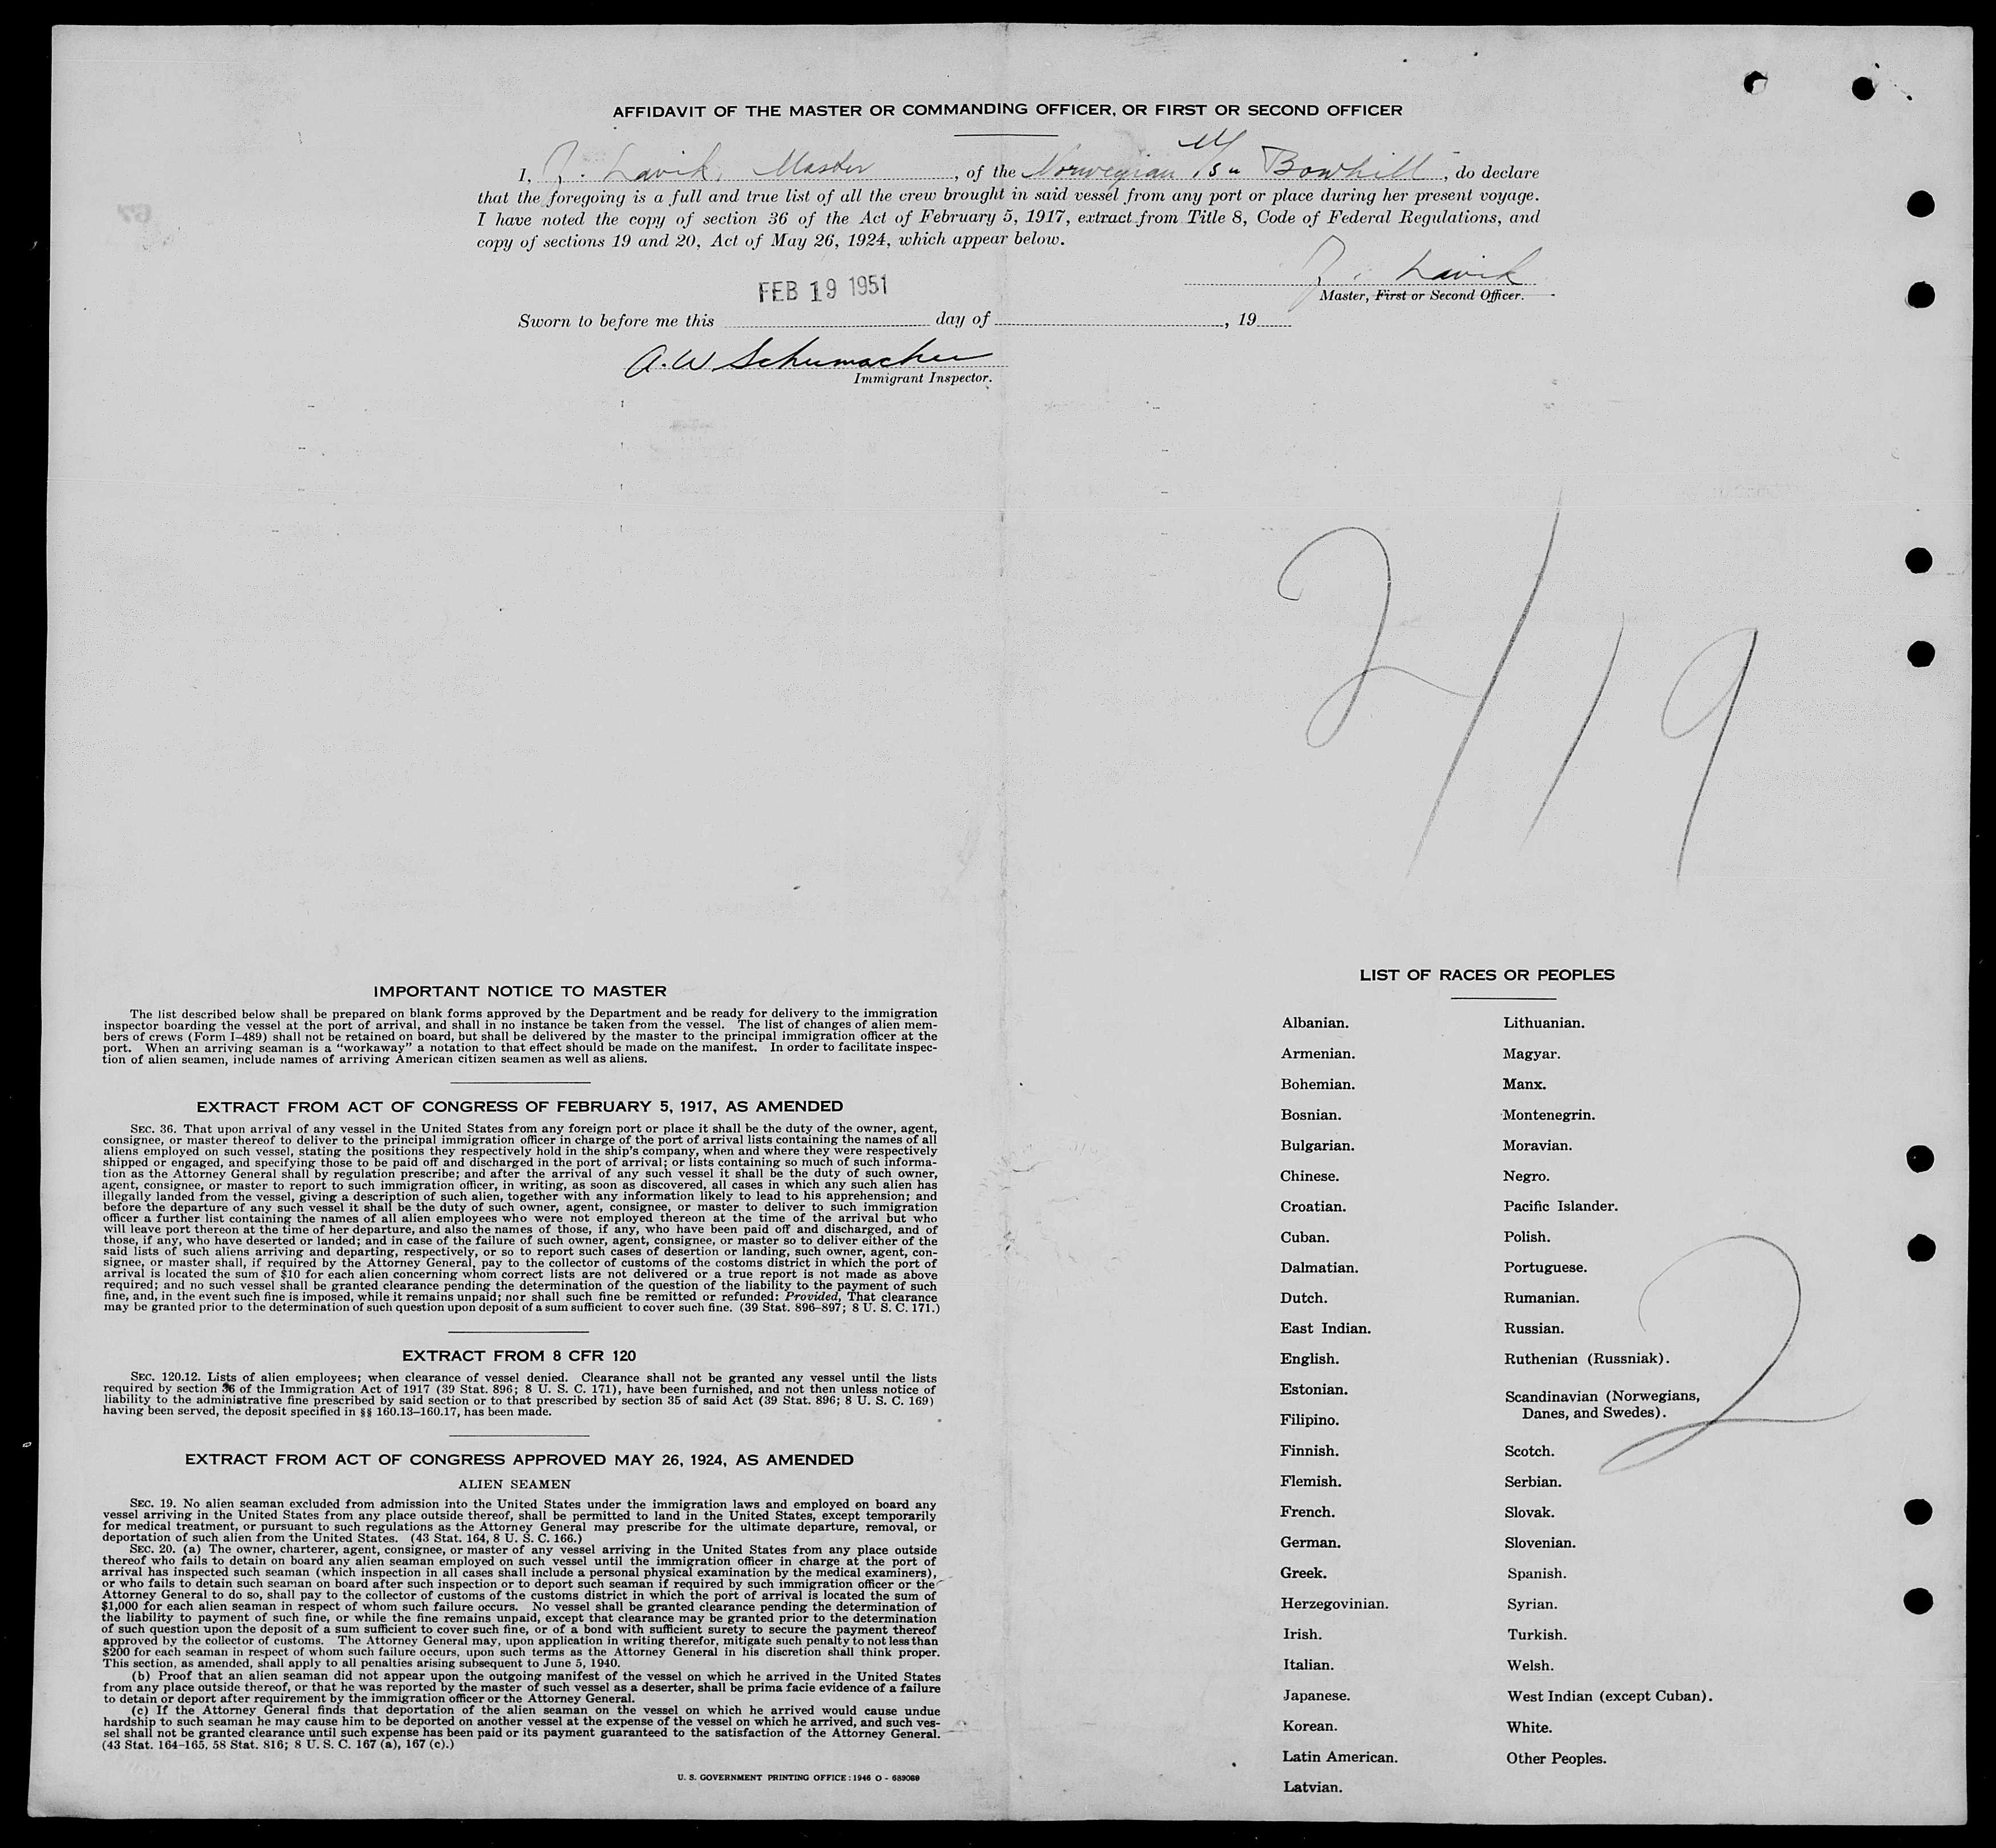 AFFIDAVIT OF THE MASTER OR COMMANDING OFFICER, OR FIRST OR SECOND OFFICER
I, J. Lavik, Master, of the Norwegian M/S "Bowhill", do declare
that the foregoing is a full and true list of all the crew brought in said vessel from any port or place during her present voyage.
I have noted the copy of section 36 of the Act of February 5, 1917, extract from Title 8, Code of Federal Regulations, and
copy of sections 19 and 20, Act of May 26, 1924, which appear below.
J. Lavik
Master, First or Second Officer.
FEB 19 1951
Sworn to before me this day of , 19
A. W Schumacher
Immigrant Inspector.
2/19
IMPORTANT NOTICE TO MASTER
The list described below shall be prepared on blank forms approved by the Department and be ready for delivery to the immigration
inspector boarding the vessel at the port of arrival, and shall in no instance be taken from the vessel. The list of changes of alien mem-
bers of crews (Form I-489) shall not be retained on board, but shall be delivered by the master to the principal immigration officer at the
port. When an arriving seaman is a "workaway" a notation to that effect should be made on the manifest. In order to facilitate inspec-
tion of alien seamen, include names of arriving American citizen seamen as well as aliens.
EXTRACT FROM ACT OF CONGRESS OF FEBRUARY 5, 1917, AS AMENDED
SEC. 36. That upon arrival of any vessel in the United States from any foreign port or place it shall be the duty of the owner, agent,
consignee, or master thereof to deliver to the principal immigration officer in charge of the port of arrival lists containing the names of all
aliens employed on such vessel, stating the positions they respectively hold in the ship's company, when and where they were respectively
shipped or engaged, and specifying those to be paid off and discharged in the port of arrival; or lists containing so much of such informa-
tion as the Attorney General shall by regulation prescribe; and after the arrival of any such vessel it shall be the duty of such owner,
agent, consignee, or master to report to such immigration officer, in writing, as soon as discovered, all cases in which any such alien has
illegally landed from the vessel, giving a description of such alien, together with any information likely to lead to his apprehension; and
before the departure of any such vessel it shall be the duty of such owner, agent, consignee, or master to deliver to such immigration
officer a further list containing the names of all alien employees who were not employed thereon at the time of the arrival but who
will leave port thereon at the time of her departure, and also the names of those, if any, who have been paid off and discharged, and of
those, if any, who have deserted or landed; and in case of the failure of such owner, agent, consignee, or master so to deliver either of the
said lists of such aliens arriving and departing, respectively, or so to report such cases of desertion or landing, such owner, agent, con-
signee, or master shall, if required by the Attorney General, pay to the collector of customs of the costoms district in which the port of
arrival is located the sum of $10 for each alien concerning whom correct lists are not delivered or a true report is not made as above
required; and no such vessel shall be granted clearance pending the determination of the question of the liability to the payment of such
fine, and, in the event such fine is imposed, while it remains unpaid; nor shall such fine be remitted or refunded: Provided, That clearance
may be granted prior to the determination of such question upon deposit of a sum sufficient to cover such fine. (39 Stat. 896-897; 8 U. S. C. 171.)
EXTRACT FROM 8 CFR 120
SEC. 120.12. Lists of alien employees; when clearance of vessel denied. Clearance shall not be granted any vessel until the lists
required by section 36 of the Immigration Act of 1917 (39 Stat. 896; 8 U. S. C. 171), have been furnished, and not then unless notice of
liability to the administrative fine prescribed by said section or to that prescribed by section 35 of said Act (39 Stat. 896; 8 U. S. C. 169)
having been served, the deposit specified in §§ 160.13-160.17, has been made.
EXTRACT FROM ACT OF CONGRESS APPROVED MAY 26, 1924, AS AMENDED
ALIEN SEAMEN
SEC. 19. No alien seaman excluded from admission into the United States under the immigration laws and employed on board any
vessel arriving in the United States from any place outside thereof, shall be permitted to land in the United States, except temporarily
for medical treatment, or pursuant to such regulations as the Attorney General may prescribe for the ultimate departure, removal, or
deportation of such alien from the United States. (43 Stat. 164, 8 U. S. C. 166.)
SEC. 20. (a) The owner, charterer, agent, consignee, or master of any vessel arriving in the United States from any place outside
thereof who fails to detain on board any alien seaman employed on such vessel until the immigration officer in charge at the port of
arrival has inspected such seaman (which inspection in all cases shall include a personal physical examination by the medical examiners),
or who fails to detain such seaman on board after such inspection or to deport such seaman if required by such immigration officer or the
Attorney General to do so, shall pay to the collector of customs of the customs district in which the port of arrival is located the sum of
$1,000 for each alien seaman in respect of whom such failure occurs. No vessel shall be granted clearance pending the determination of
the liability to payment of such fine, or while the fine remains unpaid, except that clearance may be granted prior to the determination
of such question upon the deposit of a sum sufficient to cover such fine, or of a bond with sufficient surety to secure the payment thereof
approved by the collector of customs. The Attorney General may, upon application in writing therefor, mitigate such penalty to not less than
$200 for each seaman in respect of whom such failure occurs, upon such terms as the Attorney General in his discretion shall think proper.
This section, as amended, shall apply to all penalties arising subsequent to June 5, 1940.
(b) Proof that an alien seaman did not appear upon the outgoing manifest of the vessel on which he arrived in the United States
from any place outside thereof, or that he was reported by the master of such vessel as a deserter, shall be prima facie evidence of a failure
to detain or deport after requirement by the immigration officer or the Attorney General.
(c) If the Attorney General finds that deportation of the alien seaman on the vessel on which he arrived would cause undue
hardship to such seaman he may cause him to be deported on another vessel at the expense of the vessel on which he arrived, and such ves-
sel shall not be granted clearance until such expense has been paid or its payment guaranteed to the satisfaction of the Attorney General.
(43 Stat. 164-165, 58 Stat. 816; 8 U. S. C. 167 (a), 167 (c).)
U. S. GOVERNMENT PRINTING OFFICE : 1946 O - 689069
LIST OF RACES OR PEOPLES
Albanian.
Armenian.
Bohemian.
Bosnian.
Bulgarian.
Chinese.
Croatian.
Cuban.
Dalmatian.
Dutch.
East Indian.
English.
Estonian.
Filipino.
Finnish.
Flemish.
French.
German.
Greek.
Herzegovinian.
Irish.
Italian.
Japanese.
Korean.
Latin American.
Latvian.
Lithuanian.
Magyar.
Manx.
Montenegrin.
Moravian.
Negro.
Pacific Islander.
Polish.
Portuguese.
Rumanian.
Russian.
Ruthenian (Russniak).
Scandinavian (Norwegians,
Danes, and Swedes).
Scotch.
Serbian.
Slovak.
Slovenian.
Spanish.
Syrian.
Turkish.
Welsh.
West Indian (except Cuban).
White.
Other Peoples.
2